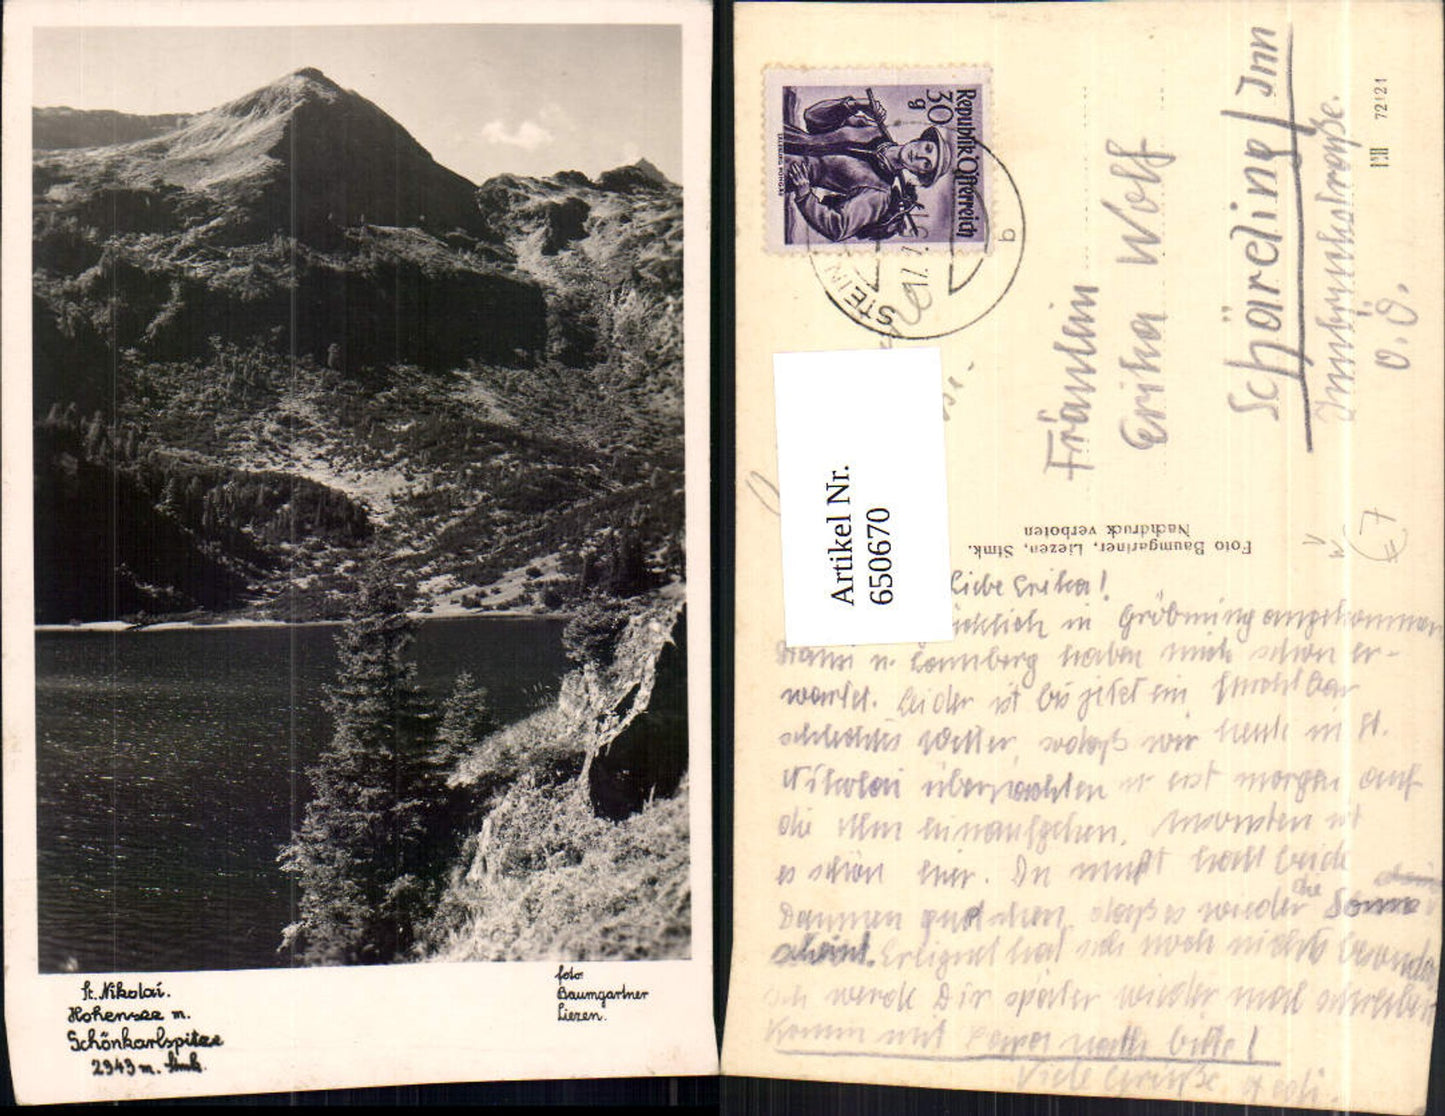 St. Nikolai.
Hohensee m.
Schönkarlspitze
2343 m. Stmk.
foto:
Baumgartner
Liezen.
Republik Österreich
30
g
SALZBURG PONGAU
STEIN
b
Fräulein
Erika Wolf
Schärding/Inn
Innbruckstraße.
O.Ö.
72121
Artikel Nr.
650670
Foto Baumgartner, Liezen, Stmk.
Nachdruck verboten
€ 7
Liebe Erika!
in Gröbming angekommen
u. haben mich schon er-
wartet. Leider ist bis jetzt ein furchtbar
schlechtes Wetter, sodaß wir heute in St.
Nikolai übernachten u. erst morgen auf
die Alm hinaufgehen. Ansonsten ist
es schön hier. Du mußt halt beide
Daumen halten, daß es wieder die Sonne
scheint. Ereignet hat sich noch nichts
Ich werde Dir später wieder mal schreiben
Komm mit nach bitte!
Viele Grüße